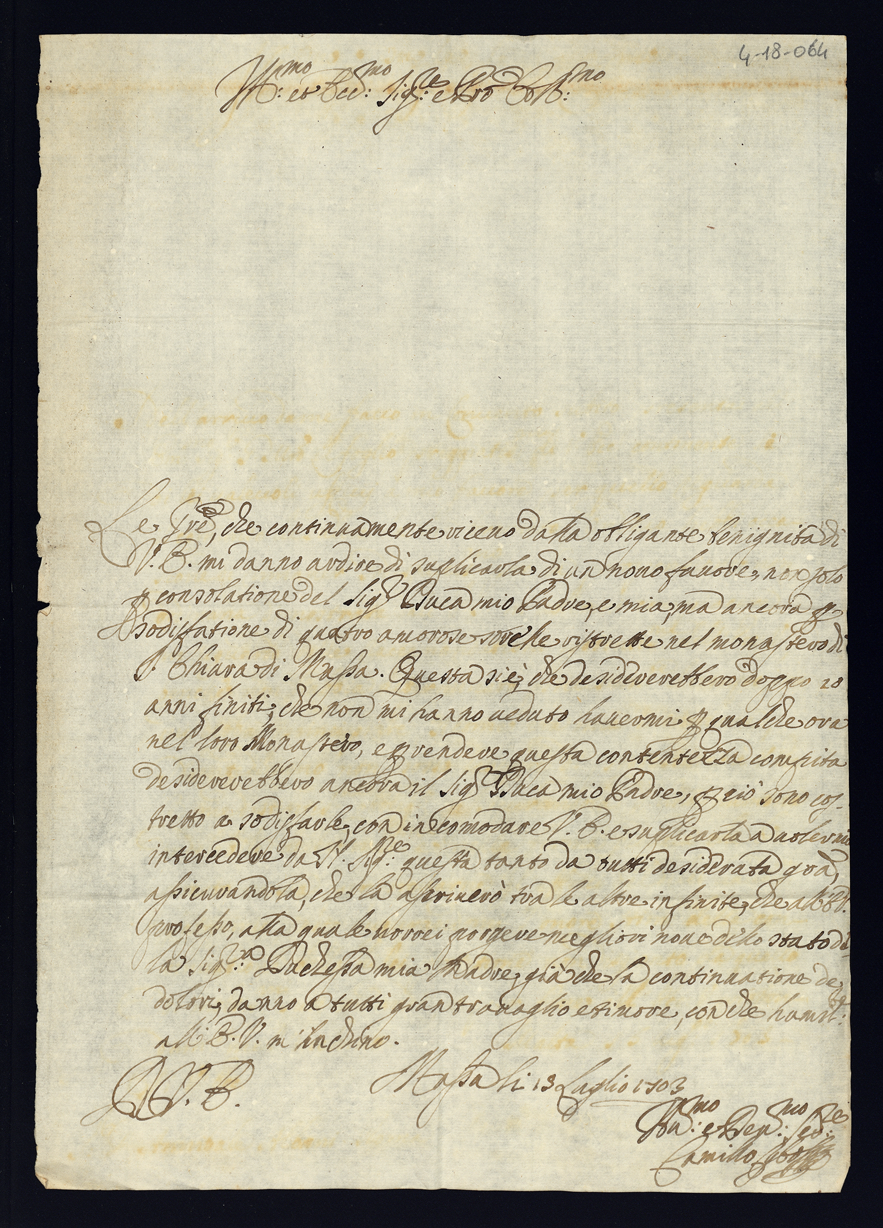 4-18-064
Ill:mo et Ecc:mo Sig:re e Pro
Le Gre, che continuamente riceuo dalla obligante benignità di
V. E. mi danno ardire di suplicarla di un nouo fauore, non solo
consolatione del Sig:r Duca mio Padre, e mia, ma ancora p
sodisfatione di quatro amorose sorelle ristrette nel monastero di
S. Chiara di Massa. Questa si è, che desidererebbero doppo 20
anni finiti, che non mi hanno ueduto hauermi p qualche ora
nel loro Monastero, e p rendere questa contentezza compita
desidererebbero ancora il Sig:r Duca mio Padre, p ciò sono cos-
tretto a sodisfarle, con incomodare V. E. e suplicarla a uolermi
intercedere da S. questa tanto da tutti desiderata gra,
assicurandola, che la ascriuerò tra le altre infinite, che all E.V.
professo, alla quale uorrei porgere megliori noue dello stato de
la Sig:ra Duchessa mia Madre, già che la continuatione de
dolori, danno a tutti gran trauaglio e timore, con che humil:te
all E. V. m'inchino.
D. V. E.
Massa li 13 Luglio 1703
mo e Deu:mo Ser:re
Camillo